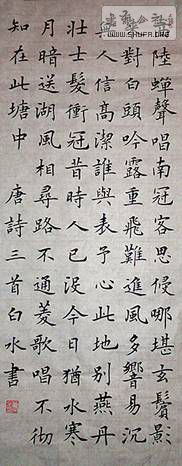 陸蟬聲唱南冠客思侵哪堪玄鬢影
對白頭吟露重飛難進風多響易沉
人信高潔誰與表予心此地別燕丹
壯士髮衝冠昔時人已没今日猶水寒
月暗送湖風相尋路不通菱歌唱不徹
知在此塘中 唐詩三首白水書